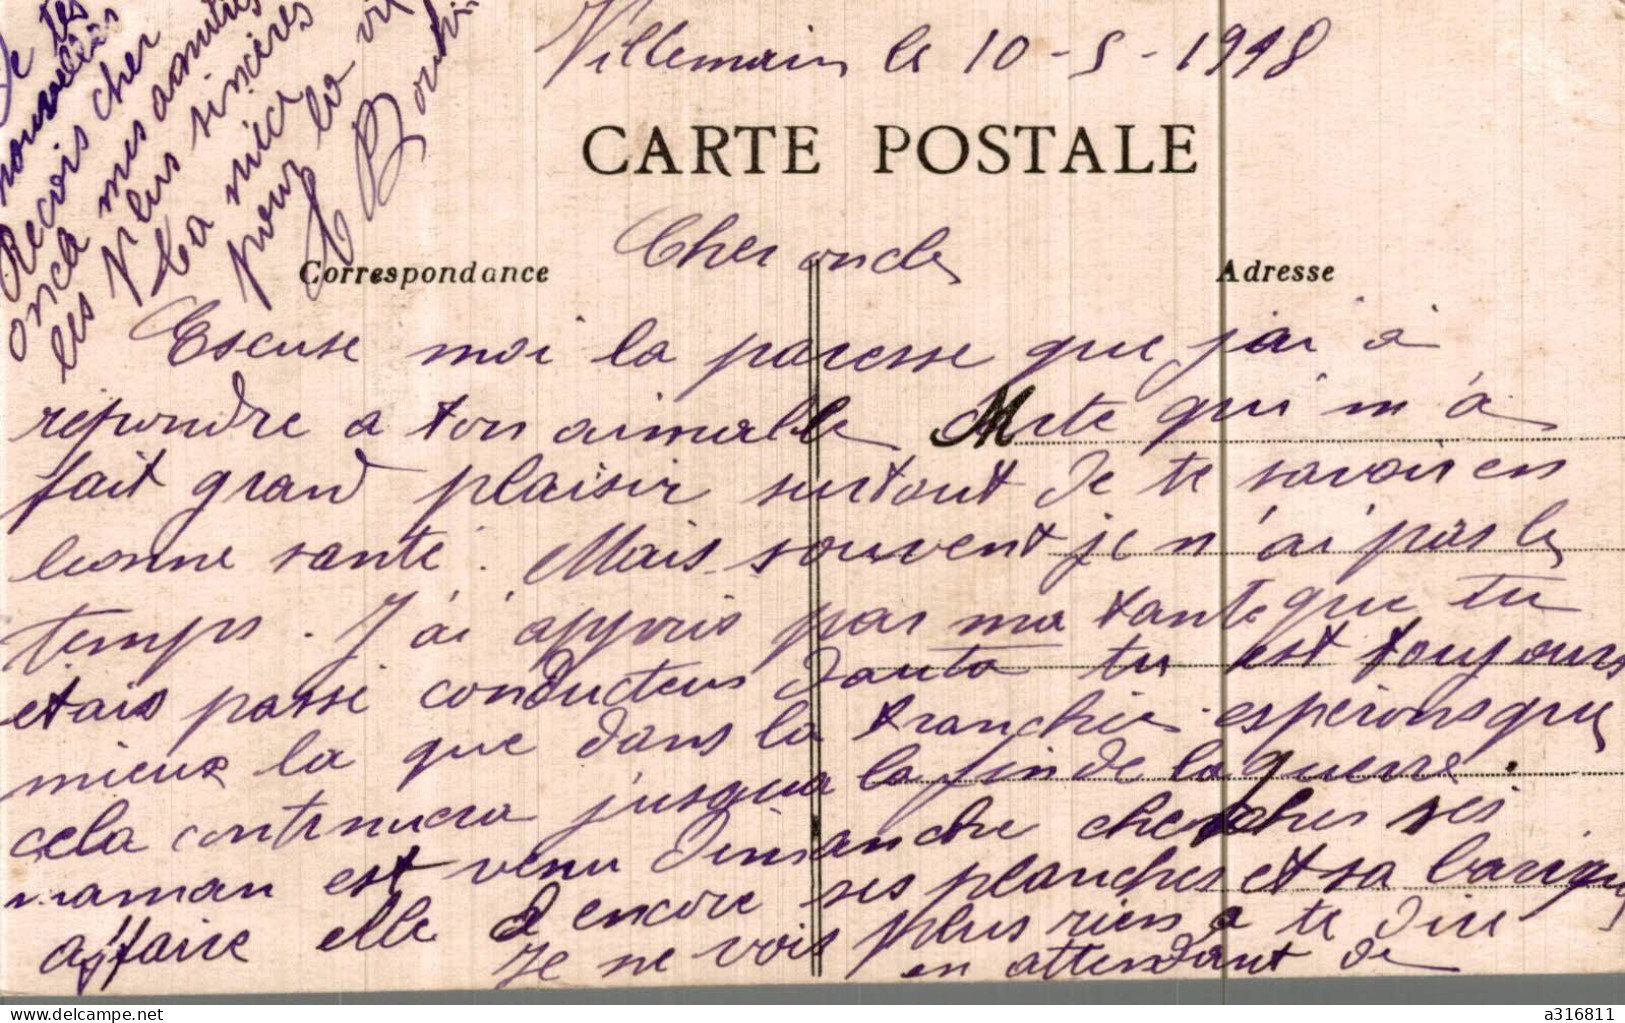 Villemain le 10-5-1918
CARTE POSTALE
Cher oncle
Correspondance
Adresse
Escuse moi la paresse que j'ai à
repondre a ton aimable Carte qui m'à
fait grand plaisir surtout de te savoir en
bonne santé. Mais souvent je n'ai pas le
temps. J'ai appris par ma tante que tu
etais passé conducteur d'auto tu est toujours
mieux la que dans la tranchée esperons que
cela continuera jusqua la fin de la guerre.
maman est venu dimanche chercher ses
affaire elle a encore ses planches et sa barique
Je ne vois plus rien a te dire
en attendant de
de tes
nouvelles
Recois cher
oncle mes amitiés
les plus sincères
Ta nièce
pour la vie
delcampe.net
a316811